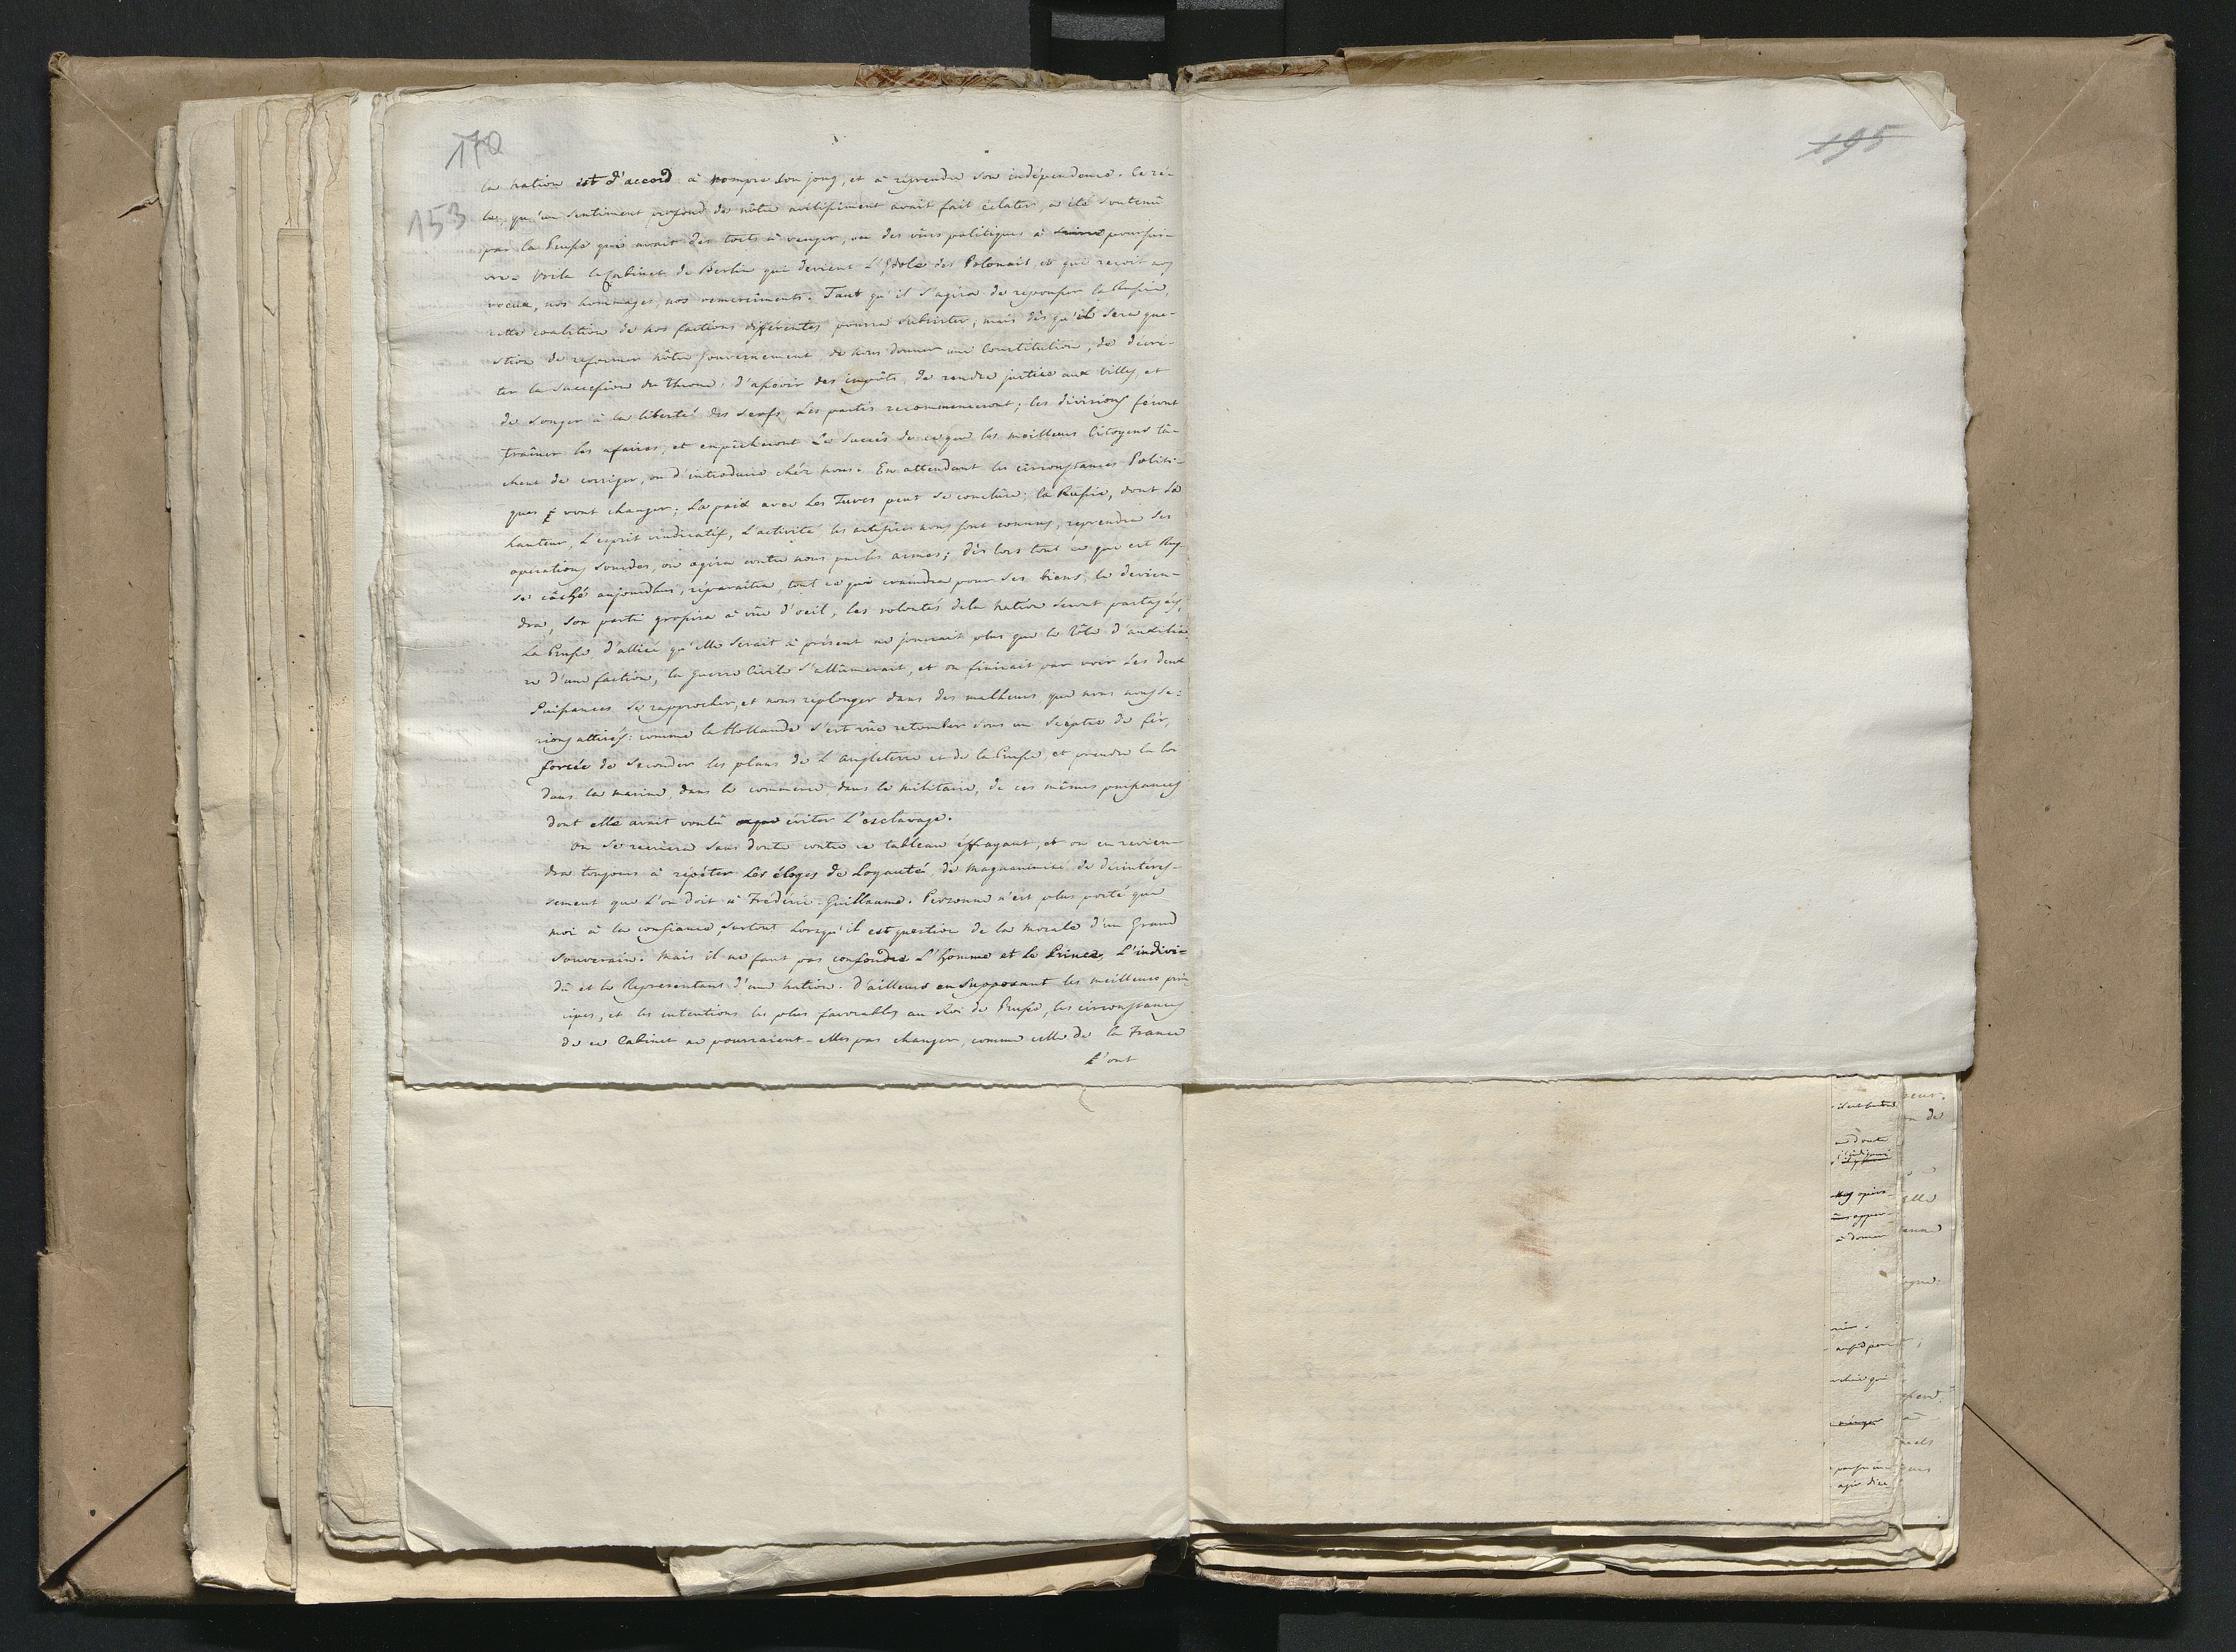 170
195
153
la nation est d'accord à rompre son joug, et à réprendre son indépendence. Ce ré-
les, qu'un sentiment profond de nôtre avilissiment avait fait éclater, a été soutenû
par la Prusse qui avait des torts à venger, ou des vûes politiques à suivre poursui-
vre. Voila le Cabinet de Berlin qui devient L'Idole des Polonais, et qui reçoit nos
voeux, nos hommages, nos remerciments. Tant qu'il s'agira de repousser la Russie,
cette coalition de nos factions différentes pourra subsister, mais dès qu'il sera que-
stion de reformer nôtre gouvernement, de nous donner une Constitution, de décré-
ter la Succession du throne, d'asseoir des impôts, de rendre justice aux Villes, et
de songer à la liberté des Serfs, Les partis recommenceront; les divisions féront
traîner les afaires, et empêcheront Le Succès de ce que les meilleurs Citoyens tâ-
chent de corriger, ou d'introduire chéz nous. En attendant les circonstances Politi-
ques vont changer; La paix avec Les Turcs peut se conclûre; la Russie, dont la
hauteur, L'esprit vindicatif, L'activité, les artifices nous sont connus, réprendra Ses
opérations Sourdes, ou agira contre nous par les armes; dès lors tout ce qui est Rus-
se câché aujourdhui, réparaîtra, tout ce qui craindra pour Ses biens, le devien-
dra, Son parti grossira à vûe d'oeil, les volontés de la nation Seront partagées,
La Prusse, d'alliée qu'elle Serait à présent ne jouerait plus que le rôle d'auxiliai-
re d'une faction, la guerre Civile S'allûmerait, et on finirait par voir Les deux
Puissances Se rapprocher, et nous réplonger dans des malheurs que nous nous se-
rions attirés: comme la Hollande S'est vûe retomber sous un Sceptre de fér,
forcée de Seconder les plans de L'Angleterre et de la Prusse, et prendre la loi
dans la marine, dans le commerce, dans le militaire, de ces mêmes puissances
dont elle avait voulû éviter L'esclavage.
On Se recriera Sans doute contre ce tableau éffrayant, et on en revien-
dra toujours à répéter Les éloges de Loyauté, de Magnanimité de désintéres-
sement que L'on doit à Frédéric-Guillaume. Personne n'est plus porté que
moi à la confiance, surtout Lorsqu'il est question de la morale d'un Grand
Souverain. Mais il ne faut pas confondre L'homme et le Prince, L'indivi-
dû et le Représentant d'une nation. D'ailleurs en Supposant les meilleurs prin
cipes, et les intentions les plus favorables au Roi de Prusse, les circonstances
de ce Cabinet ne pourraient-elles pas changer, comme celle de la France
l'ont